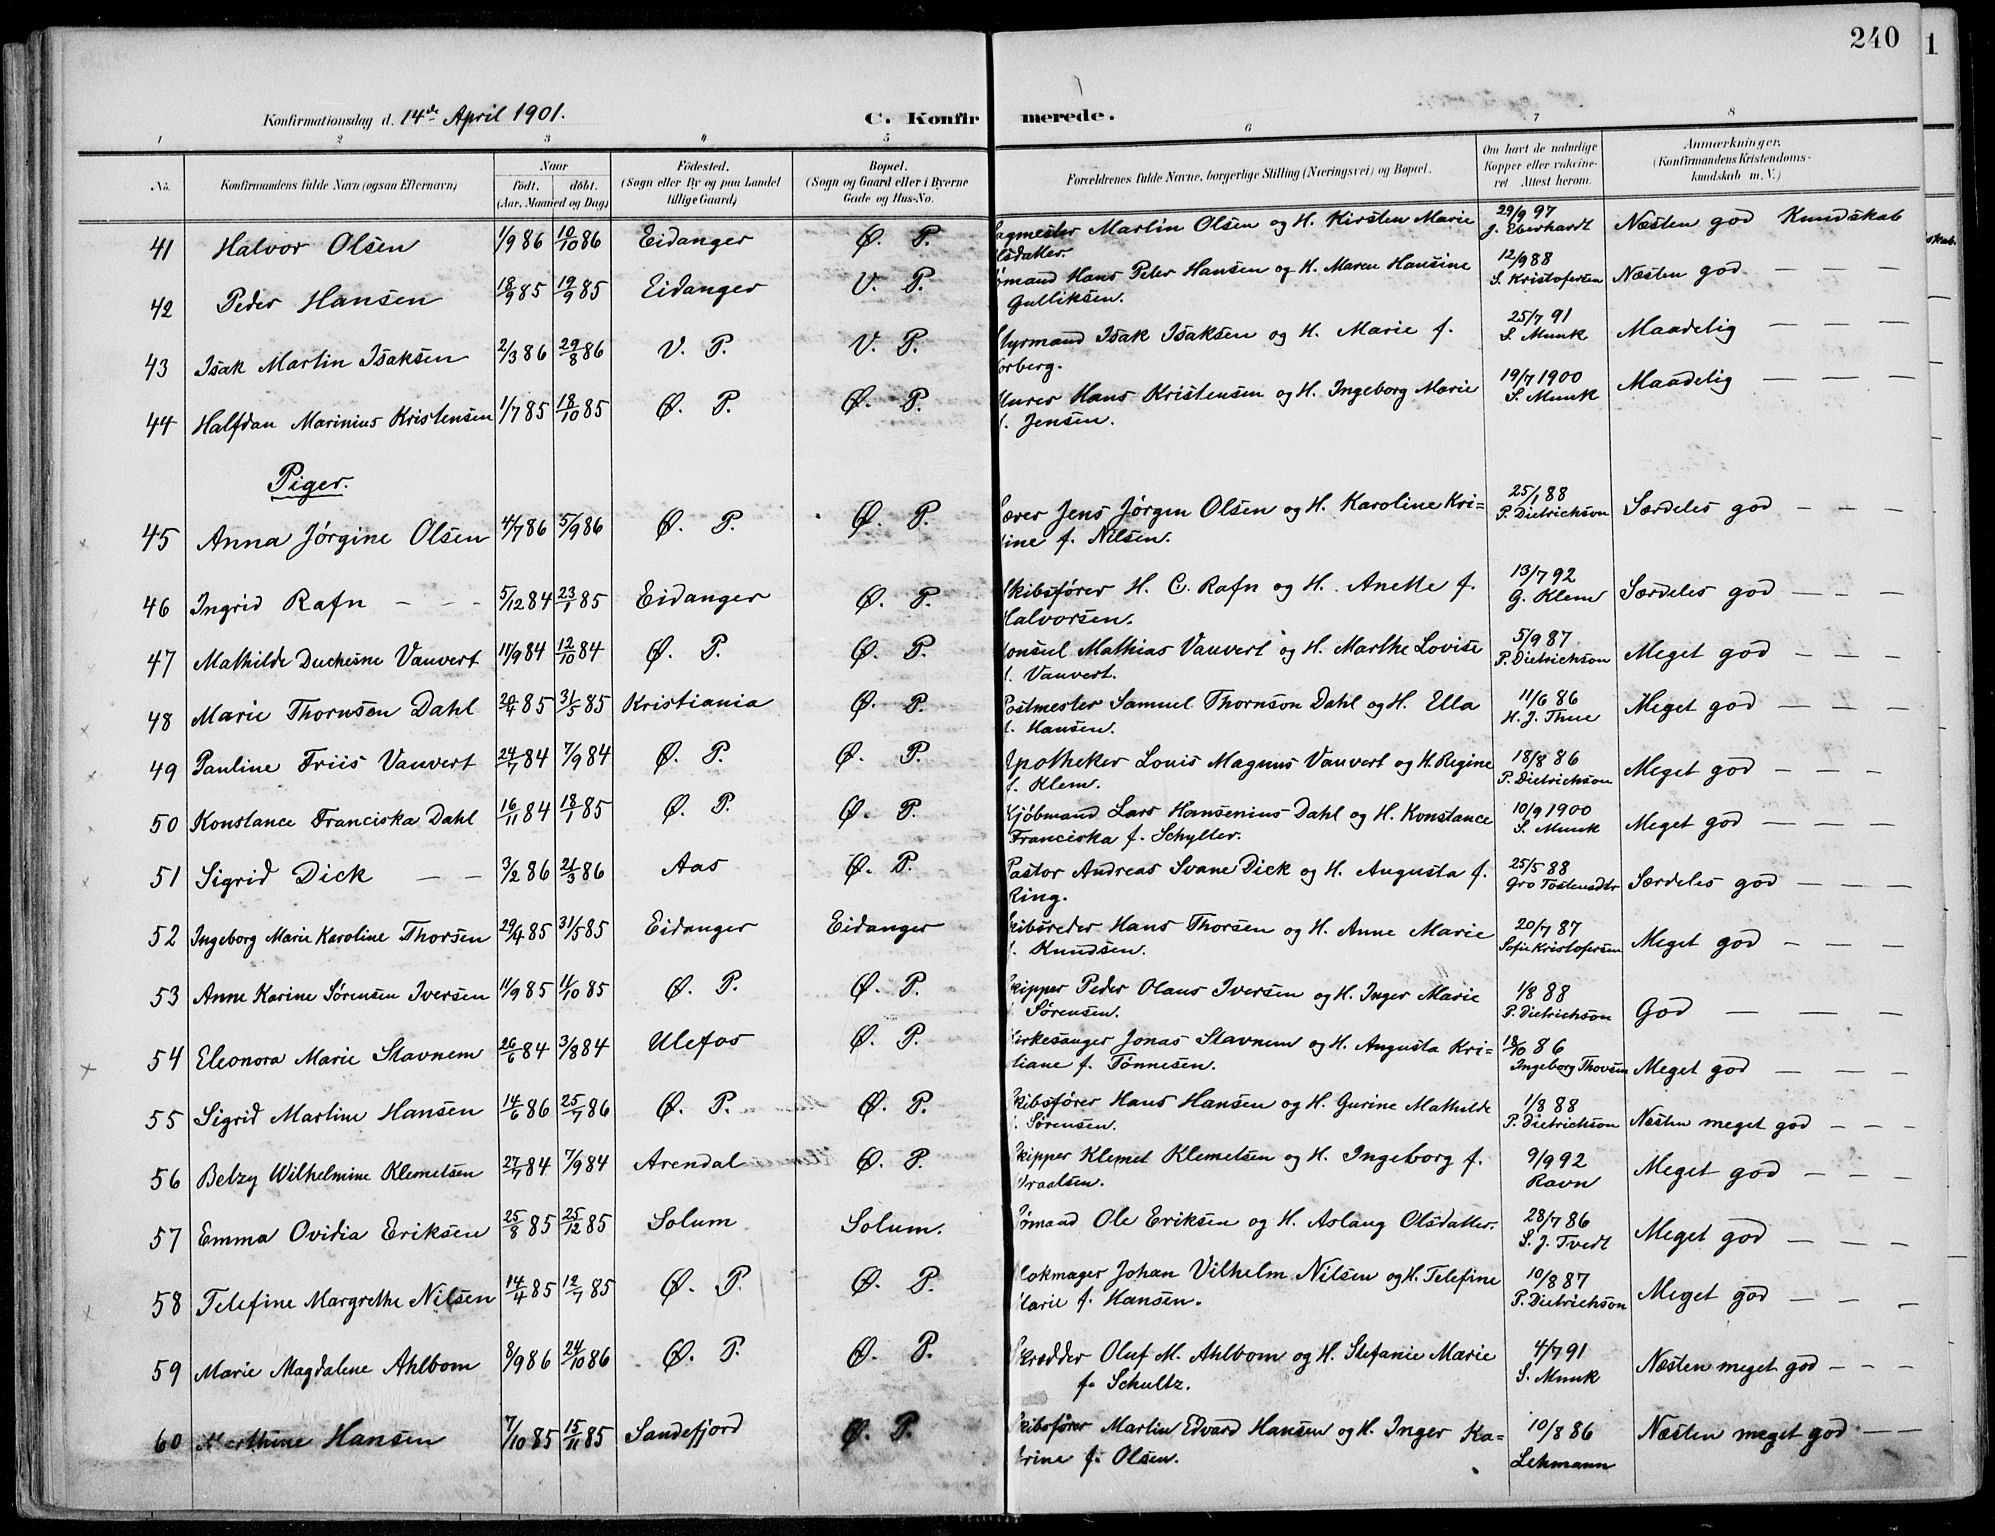 240
1
Konfirmationsdag d. 14de April 1901.
C. Konfirmerede.
1 2 3 4 5 6 7 8
No.
Konfirmandens fulde Navn (ogsaa Efternavn)
Naar
født. døbt.
(Aar, Maaned og Dag)
Fødested.
(Sogn eller By og paa Landet
tillige Gaard)
Bopæl.
(Sogn og Gaard eller i Byerne
Gade og Hus-No.
Forældrenes fulde Navne, borgerlige Stilling (Næringsvei) og Bopæl.
Om havt de naturlige
Kopper eller vakcine-
ret Attest herom.
Anmærkninger.
(Konfirmandens Kristendoms-
kundskab m. V.)
41 Halvor Olsen 1/9 86 10/10 86 Eidanger Ø. P. agmester Martin Olsen og H. Kirsten Marie 29/9 97 Næsten god Kundskab
lsdatter. J. Eberhardt
42 Peder Hansen 18/9 85 19/9 85 Eidanger V. P. ømand Hans Peter Hansen og H. Maren Hansine 12/9 88 Næsten god — — —
Gulliksen. S. Kristofersen
43 Isak Martin Isaksen 2/3 86 29/8 86 V. P. V. P. tyrmand Isak Isaksen og H. Marie f. 25/7 91 Maadelig — — —
orberg. S. Munk
44 Halfdan Marinius Kristensen 1/7 85 18/10 85 Ø. P. Ø. P. urer Hans Kristensen og H. Ingeborg Marie 19/7 1900 Maadelig — — —
f. Jensen. S. Munk
Piger.
45 Anna Jørgine Olsen 4/7 86 5/9 86 Ø. P. Ø. P. ærer Jens Jørgen Olsen og H. Karoline Kri= 25/1 88 Særdeles god — — —
ine f. Nilsen. P. Dietrichson
46 Ingrid Rafn — — — 5/12 84 23/1 85 Eidanger Ø. P. kibsfører H. C. Rafn og H. Anette f. 13/7 92 Særdeles god — — —
Halvorsen. G. Klem
47 Mathilde Duchesne Vauvert 11/9 84 12/10 84 Ø. P. Ø. P. onsul Mathias Vauvert og H. Marthe Lovise 5/9 87 Meget god — — —
f. Vauvert. P. Dietrichson
48 Marie Thornsen Dahl 20/4 85 31/5 85 Kristiania Ø. P. ostmester Samuel Thornson Dahl og H. Ella 11/6 86 Meget god — — —
f. Hansen. H. J. Thue
49 Pauline Friis Vauvert 24/7 84 7/9 84 Ø. P. Ø. P. Apotheker Louis Magnus Vauvert og H. Regine 18/8 86 Meget god — — —
f. Klem. P. Dietrichson
50 Konstance Franciska Dahl 16/11 84 18/1 85 Ø. P. Ø. P. Kjøbmand Lars Hansenius Dahl og H. Konstance 10/9 1900 Meget god — — —
Franciska f. Schylter. S. Munk
51 Sigrid Dick — — 3/2 86 21/3 86 Aas Ø. P. Pastor Andreas Svane Dick og H. Augusta f. 25/5 88 Særdeles god — — —
Ring. Gro Tostensdtr
52 Ingeborg Marie Karoline Thorsen 29/4 85 31/5 85 Eidanger Eidanger kibsreder Hans Thorsen og H. Anne Marie 20/7 87 Meget god — — —
f. Knudsen. Sofie Kristofersen
53 Anne Karine Sørensen Iversen 11/9 85 11/10 85 Ø. P. Ø. P. kipper Peder Olaus Iversen og H. Inger Marie 1/8 88 God — — —
Sørensen. P. Dietrichson
54 Eleonora Marie Stavnem 26/6 84 3/8 84 Ulefos Ø. P. irkesanger Jonas Stavnem og H. Augusta Kri= 18/10 86 Meget god — — —
tiane f. Tønnesen. Ingeborg Thovsen
55 Sigrid Martine Hansen 14/6 86 25/7 86 Ø. P. Ø. P. kibsfører Hans Hansen og H. Gurine Mathilde 1/8 88 Næsten meget god — — —
Sørensen. P. Dietrichson
56 Betzy Wilhelmine Klemetsen 27/7 84 7/9 84 Arendal Ø. P. kipper Klemet Klemetsen og H. Ingeborg f. 9/9 92 Meget god — — —
raalsen. Ravn
57 Emma Ovidia Eriksen 25/8 85 25/12 85 Solum Solum. ømand Ole Eriksen og H. Aslaug Olsdatter. 28/7 86 Meget god — — —
S. J. Tvedt
58 Telefine Margrethe Nilsen 14/4 85 12/7 85 Ø. P. Ø. P. lokmager Johan Vilhelm Nilsen og H. Telefine 10/8 87 Meget god — — —
Marie f. Hansen. P. Dietrichson
59 Marie Magdalene Ahlbom 8/9 86 24/10 86 Ø. P. Ø. P. krædder Oluf M. Ahlbom og H. Stefanie Marie 4/7 91 Næsten meget god — — —
f. Schultz. S. Munk
60 Marthine Hansen 7/10 85 15/11 85 Sandefjord Ø. P. kibsfører Martin Edvard Hansen og H. Inger Ka= 10/8 86 Næsten meget god — —
trine f. Olsen. Lehmann